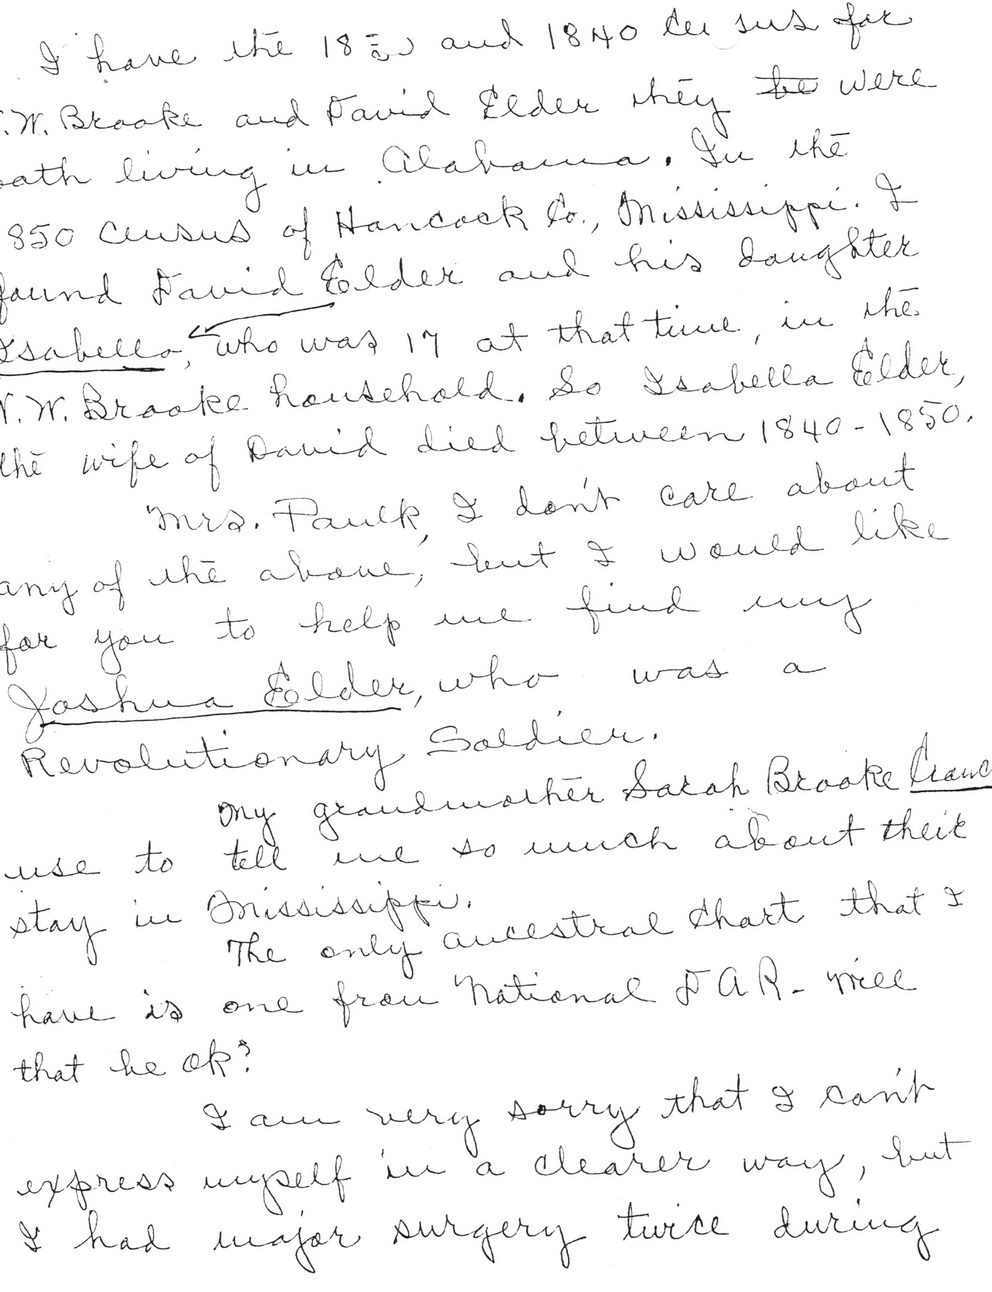 I have the 18 and 1840 Census for
.W. Brooke and David Elder they be were
oth living in Alabama. In the
850 census of Hancock Co., Mississippi. I
found David Elder and his daughter
Isabella, who was 17 at that time, in the
W. Brooke household. So Isabella Elder,
the wife of David died between 1840-1850.
Mrs. Paulk, I don't care about
any of the above, but I would like
for you to help me find my
Joshua Elder, who was a
Revolutionary Soldier.
My grandmother Sarah Brooke
use to tell me so much about their
stay in Mississippi.
The only ancestral chart that I
have is one from National DAR - will
that be ok?
I am very sorry that I can't
express myself in a clearer way, but
I had major surgery twice during